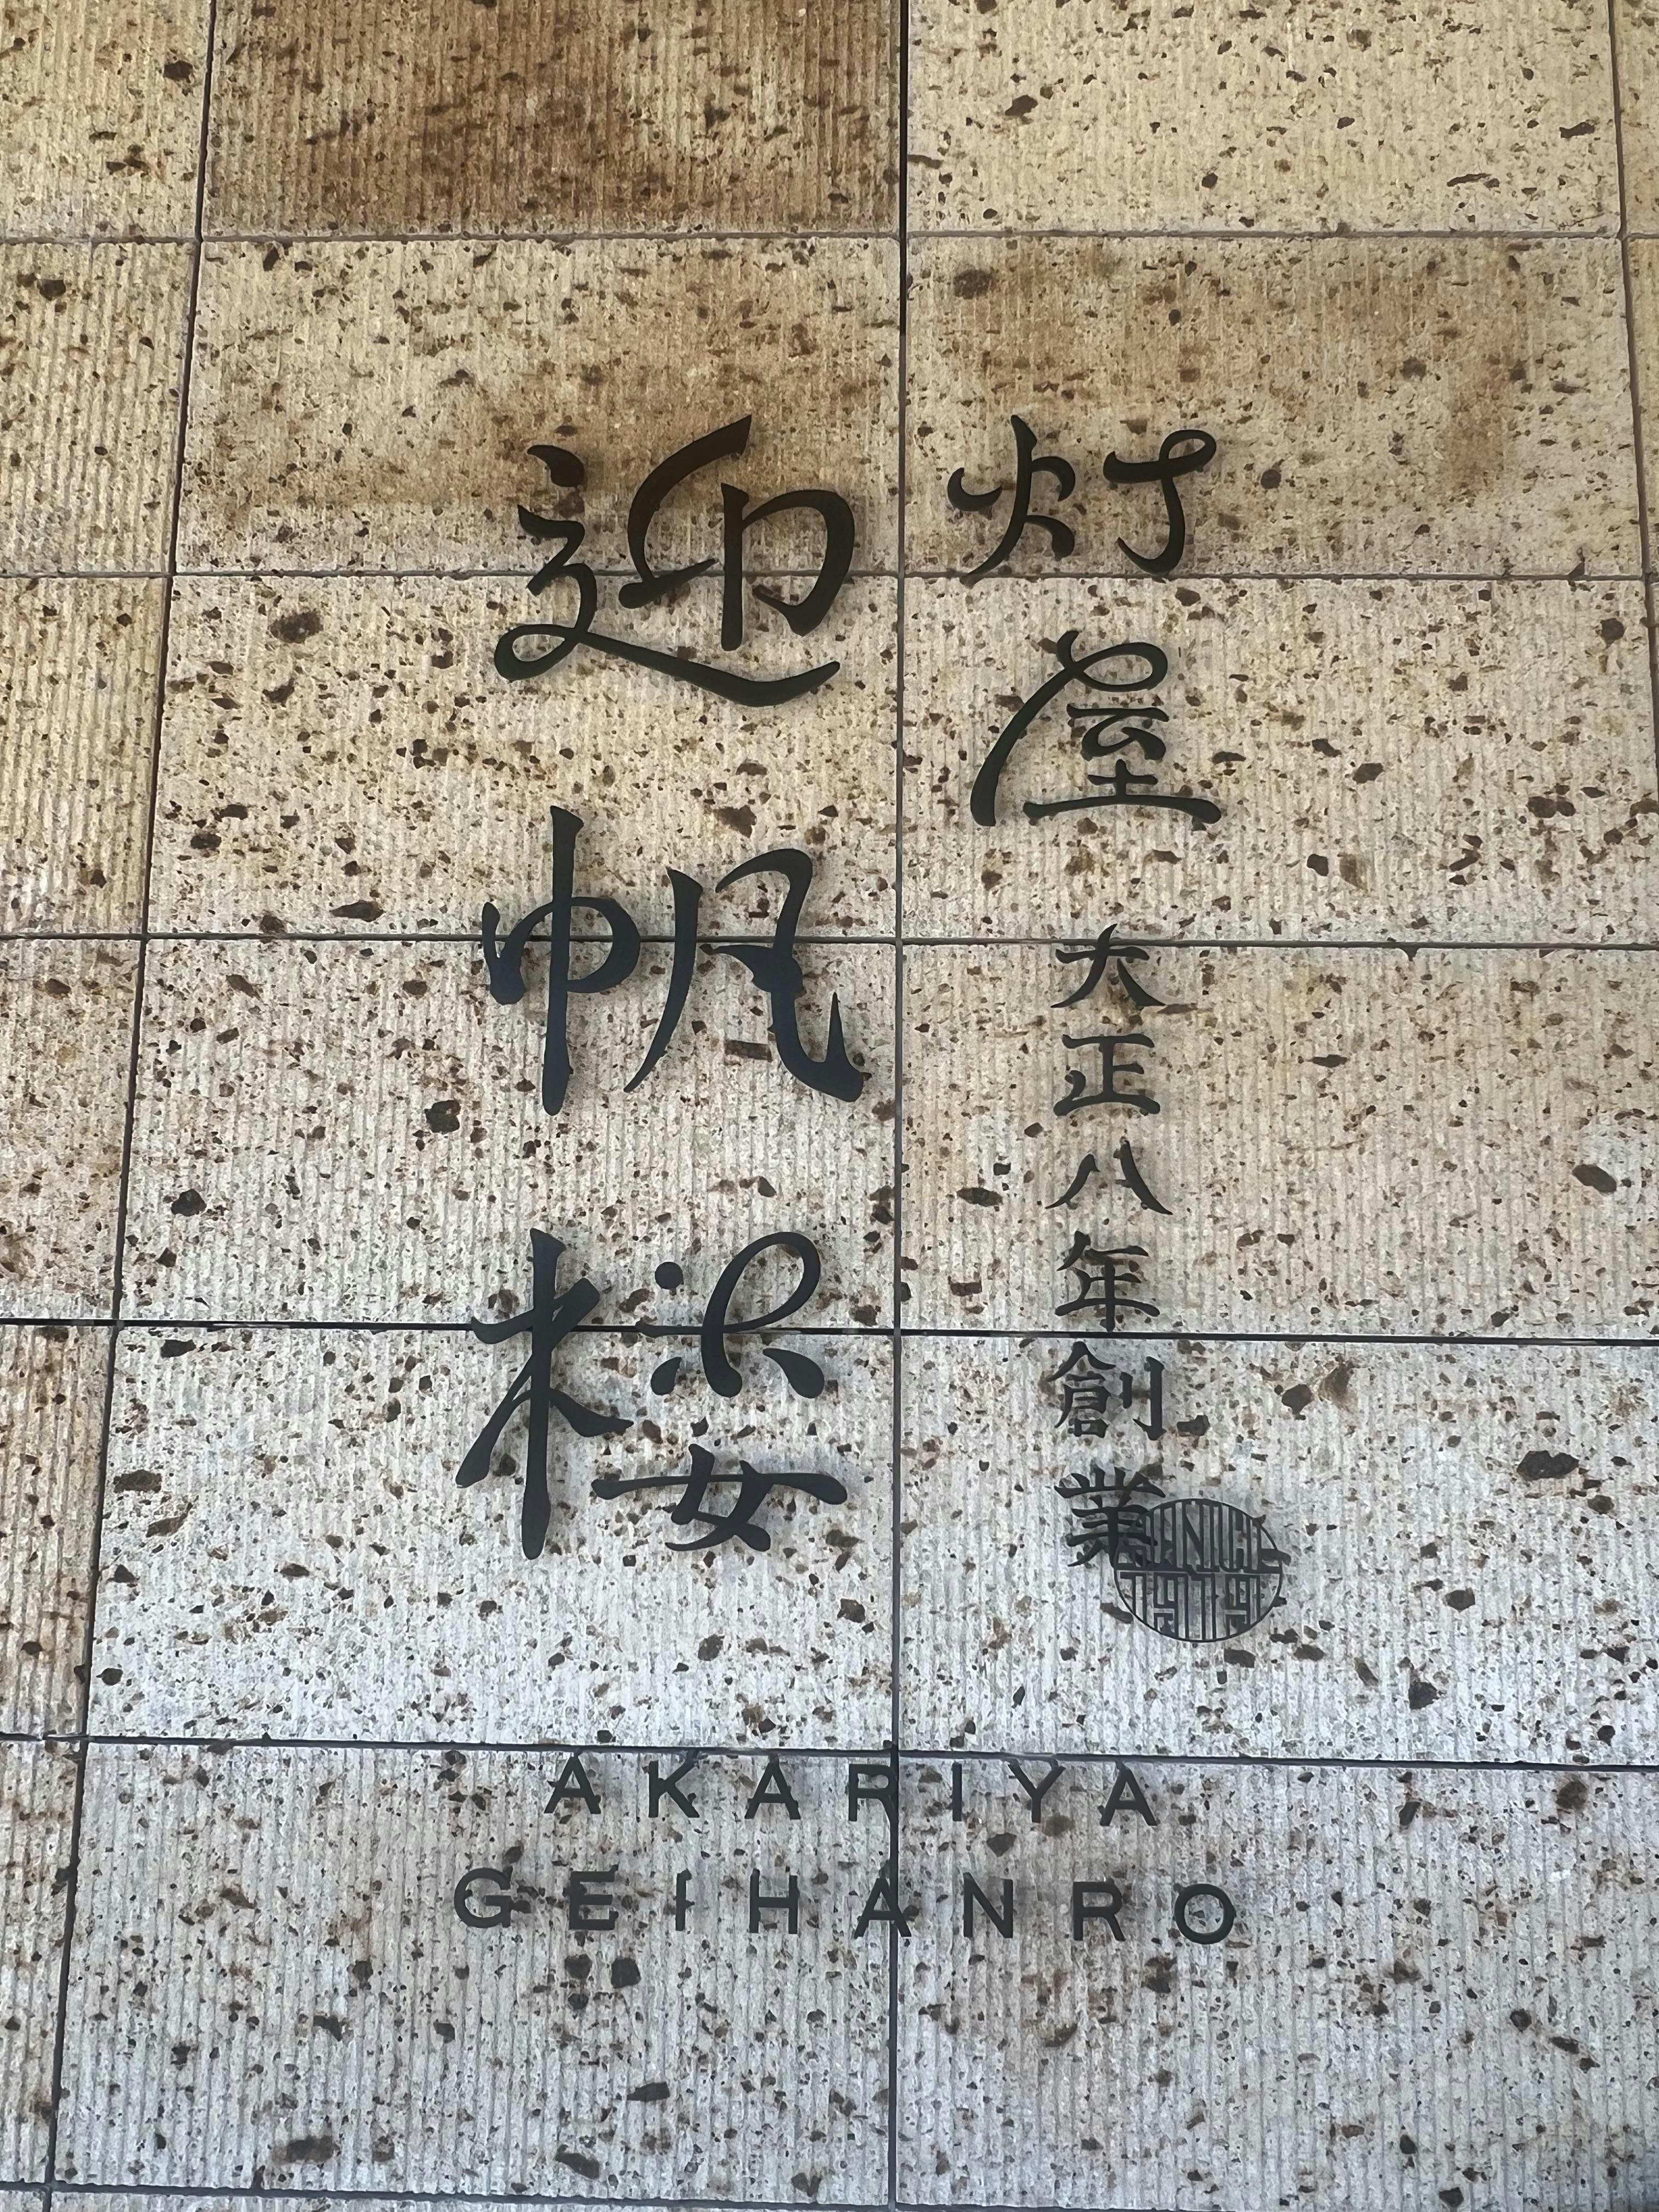 灯屋 大正八年創業
迎帆楼
SINCE
1919
AKARIYA
GEIHANRO